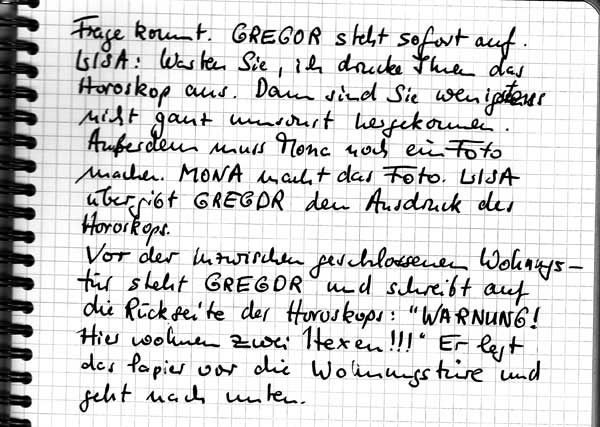 Frage kommt. GREGOR steht sofort auf.
LISA: Warten Sie, ich drucke Ihnen das
Horoskop aus. Dann sind Sie wenigstens
nicht ganz umsonst hergekommen.
Außerdem muss Mona noch ein Foto
machen. MONA macht das Foto. LISA
übergibt GREGOR den Ausdruck des
Horoskops.
Vor der inzwischen geschlossenen Wohnungs-
tür steht GREGOR und schreibt auf
die Rückseite des Horoskops: "WARNUNG!
Hier wohnen zwei Hexen!!!" Er legt
das Papier vor die Wohnungstüre und
geht nach unten.